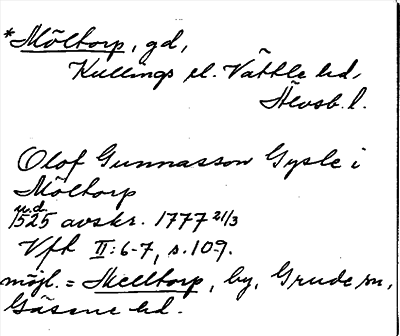 *Möltorp, gd,
Kullings el. Vättle hd,
Älvsb. l.
Olof Gunnasson Gysle i
Möltorp
u.d.
1525 avskr. 1777 21/3
Vfh II:6-7, s. 109.
möjl. = Melltorp, by, Grude sn,
Gäsene hd.